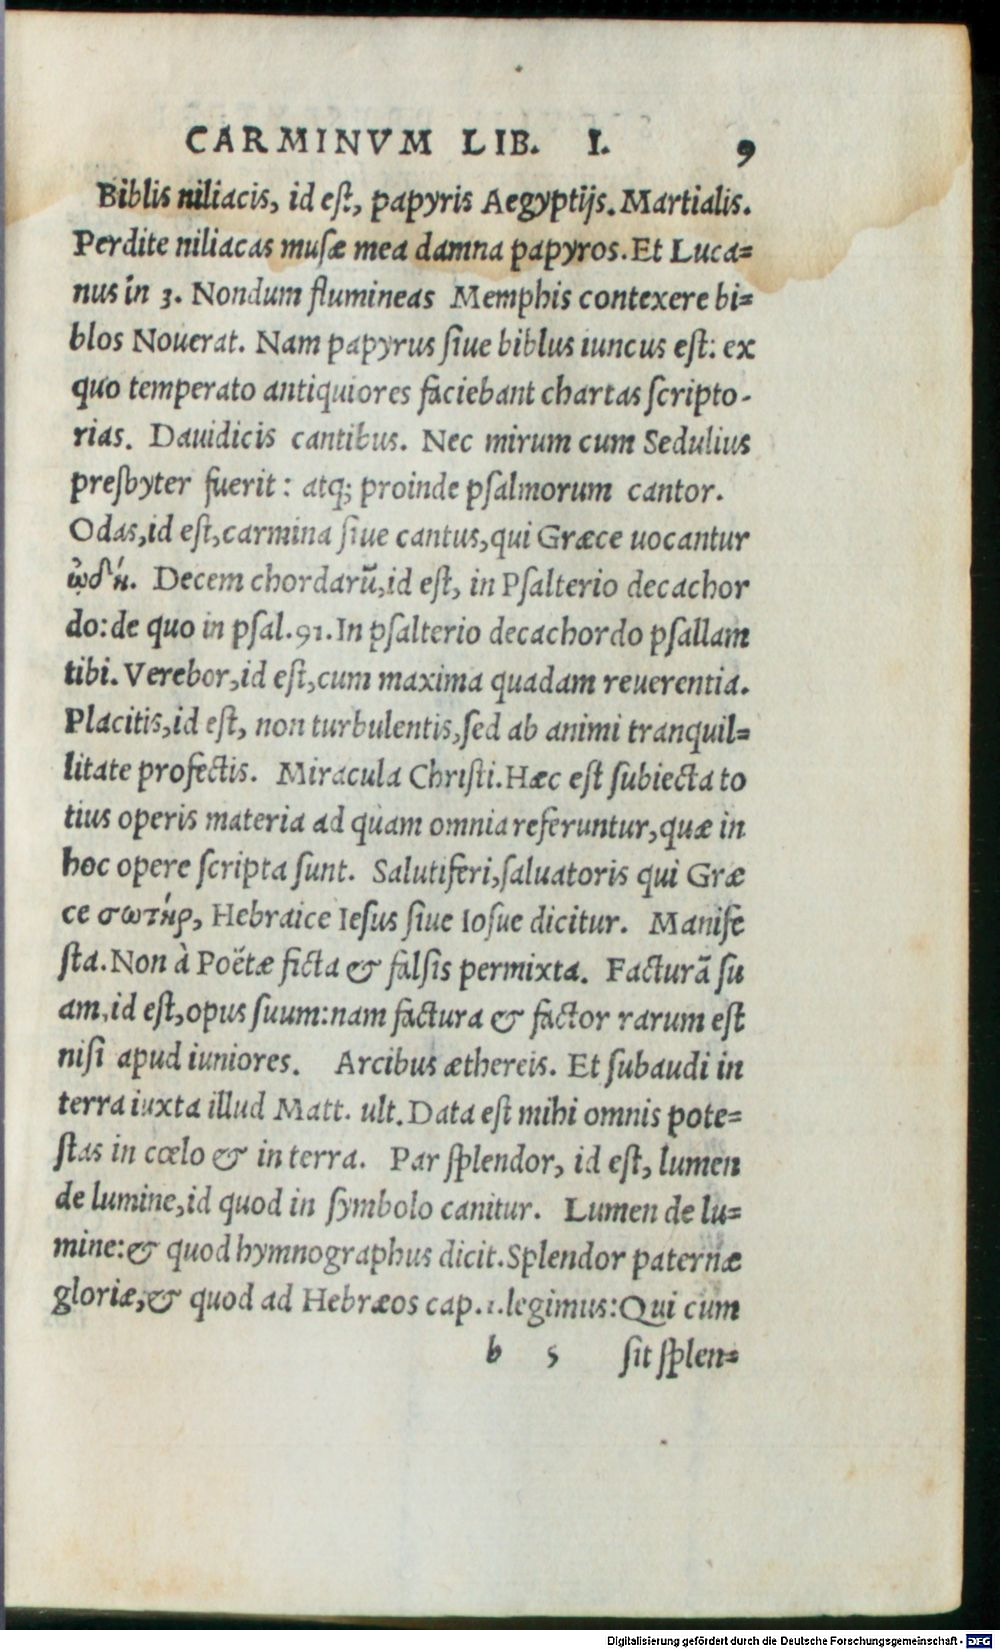 CARMINVM LIB. I. 9
Biblis niliacis, id eſt, papyris Aegyptijs. Martialis.
Perdite niliacas muſæ mea damna papyros. Et Luca=
nus in 3. Nondum flumineas Memphis contexere bi=
blos Nouerat. Nam papyrus ſiue biblus iuncus eſt: ex
quo temperato antiquiores faciebant chartas ſcripto-
rias. Dauidicis cantibus. Nec mirum cum Sedulius
preſbyter fuerit: atq; proinde pſalmorum cantor.
Odas, id eſt, carmina ſiue cantus, qui Græce uocantur
ᾠδή. Decem chordarũ, id eſt, in Pſalterio decachor
do: de quo in pſal. 91. In pſalterio decachordo pſallam
tibi. Verebor, id eſt, cum maxima quadam reuerentia.
Placitis, id eſt, non turbulentis, ſed ab animi tranquil=
litate profectis. Miracula Chriſti. Hæc eſt ſubiecta to
tius operis materia ad quam omnia referuntur, quæ in
hoc opere ſcripta ſunt. Salutiferi, ſaluatoris qui Græ
ce σωτήρ, Hebraice Ieſus ſiue Ioſue dicitur. Manife
ſta. Non à Poëtæ ficta & falſis permixta. Facturã ſu
am, id eſt, opus ſuum: nam factura & factor rarum eſt
niſi apud iuniores. Arcibus æthereis. Et ſubaudi in
terra iuxta illud Matt. ult. Data eſt mihi omnis pote=
ſtas in cœlo & in terra. Par ſplendor, id eſt, lumen
de lumine, id quod in ſymbolo canitur. Lumen de lu=
mine: & quod hymnographus dicit. Splendor paternæ
gloriæ, & quod ad Hebræos cap. 1. legimus: Qui cum
b 5 ſit ſplen=
Digitalisierung gefördert durch die Deutsche Forschungsgemeinschaft - DFG